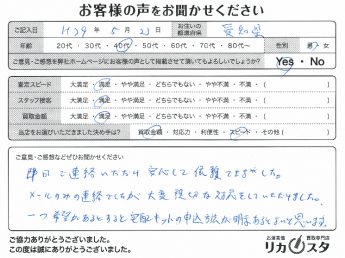 お客様の声をお聞かせください
ご記入日 H29年 5月 23日 お住いの都道府県 愛知県
年齢 20代・30代・40代・50代・60代・70代・80代〜 性別 男・女
ご意見・ご感想を弊社ホームページにお客様の声として掲載させて頂いてもよろしいでしょうか? Yes・No
査定スピード 大満足・満足・やや満足・どちらでもない・やや不満・不満・( )
スタッフ接客 大満足・満足・やや満足・どちらでもない・やや不満・不満・( )
買取金額 大満足・満足・やや満足・どちらでもない・やや不満・不満・( )
当店をお選びいただきました決め手は? 買取金額・対応力・利便性・スピード・その他( )
ご意見・ご感想などぜひお聞かせください
即日ご連絡いただけ安心して依頼できました。
メールのみの連絡でしたが大変親切な対応をしていただけました。
一つ希望があるとすると宅配キットの申込方法が明るとよいと思います。
ご協力ありがとうございました。
この度は誠にありがとうございました。
お酒高価買取専門店
リカスタ